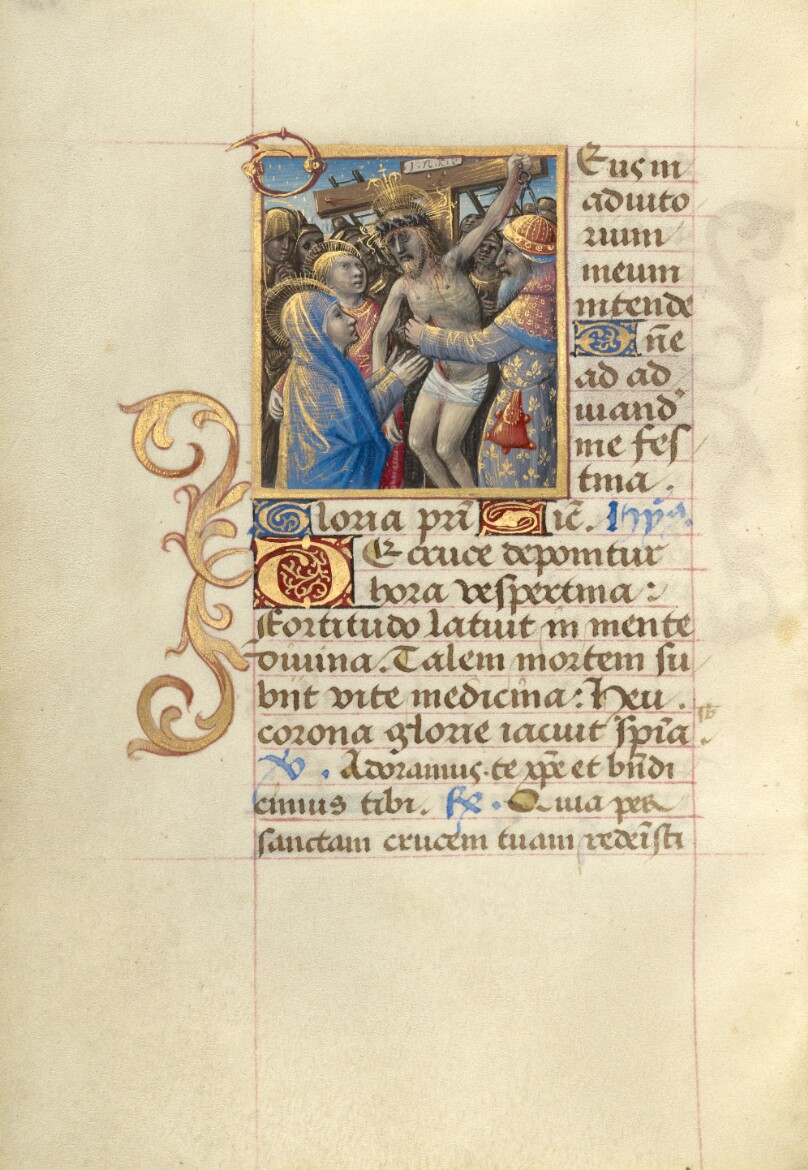 I.N.R.I.
Deus in
adiuto
rium
meum
intende
Dñe
ad ad
iuuand
me fes
tina.
Gloria pri Sic̄. Hyꝰ.
De cruce deponitur
hora vespertina:
Fortitudo latuit in mente
diuina. Talem mortem su
biit vite medicina: Heu.
corona glorie iacuit spīa
V. Adoramus te xp̄e et bn̄di
cimus tibi. R̃. Quia per
sanctam crucem tuam redeīsti